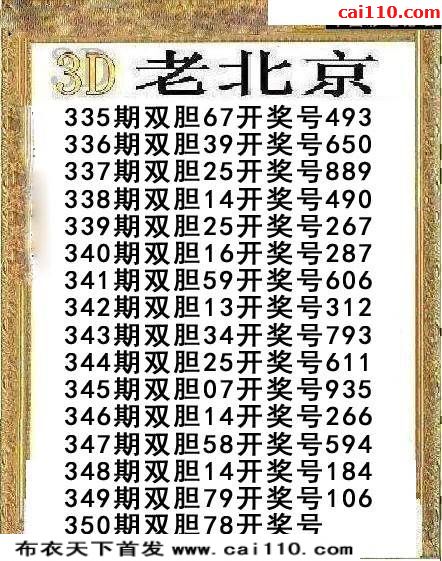 cai110.com
3D 老北京
335期双胆67开奖号493
336期双胆39开奖号650
337期双胆25开奖号889
338期双胆14开奖号490
339期双胆25开奖号267
340期双胆16开奖号287
341期双胆59开奖号606
342期双胆13开奖号312
343期双胆34开奖号793
344期双胆25开奖号611
345期双胆07开奖号935
346期双胆14开奖号266
347期双胆58开奖号594
348期双胆14开奖号184
349期双胆79开奖号106
350期双胆78开奖号
布衣天下首发 www.cai110.com